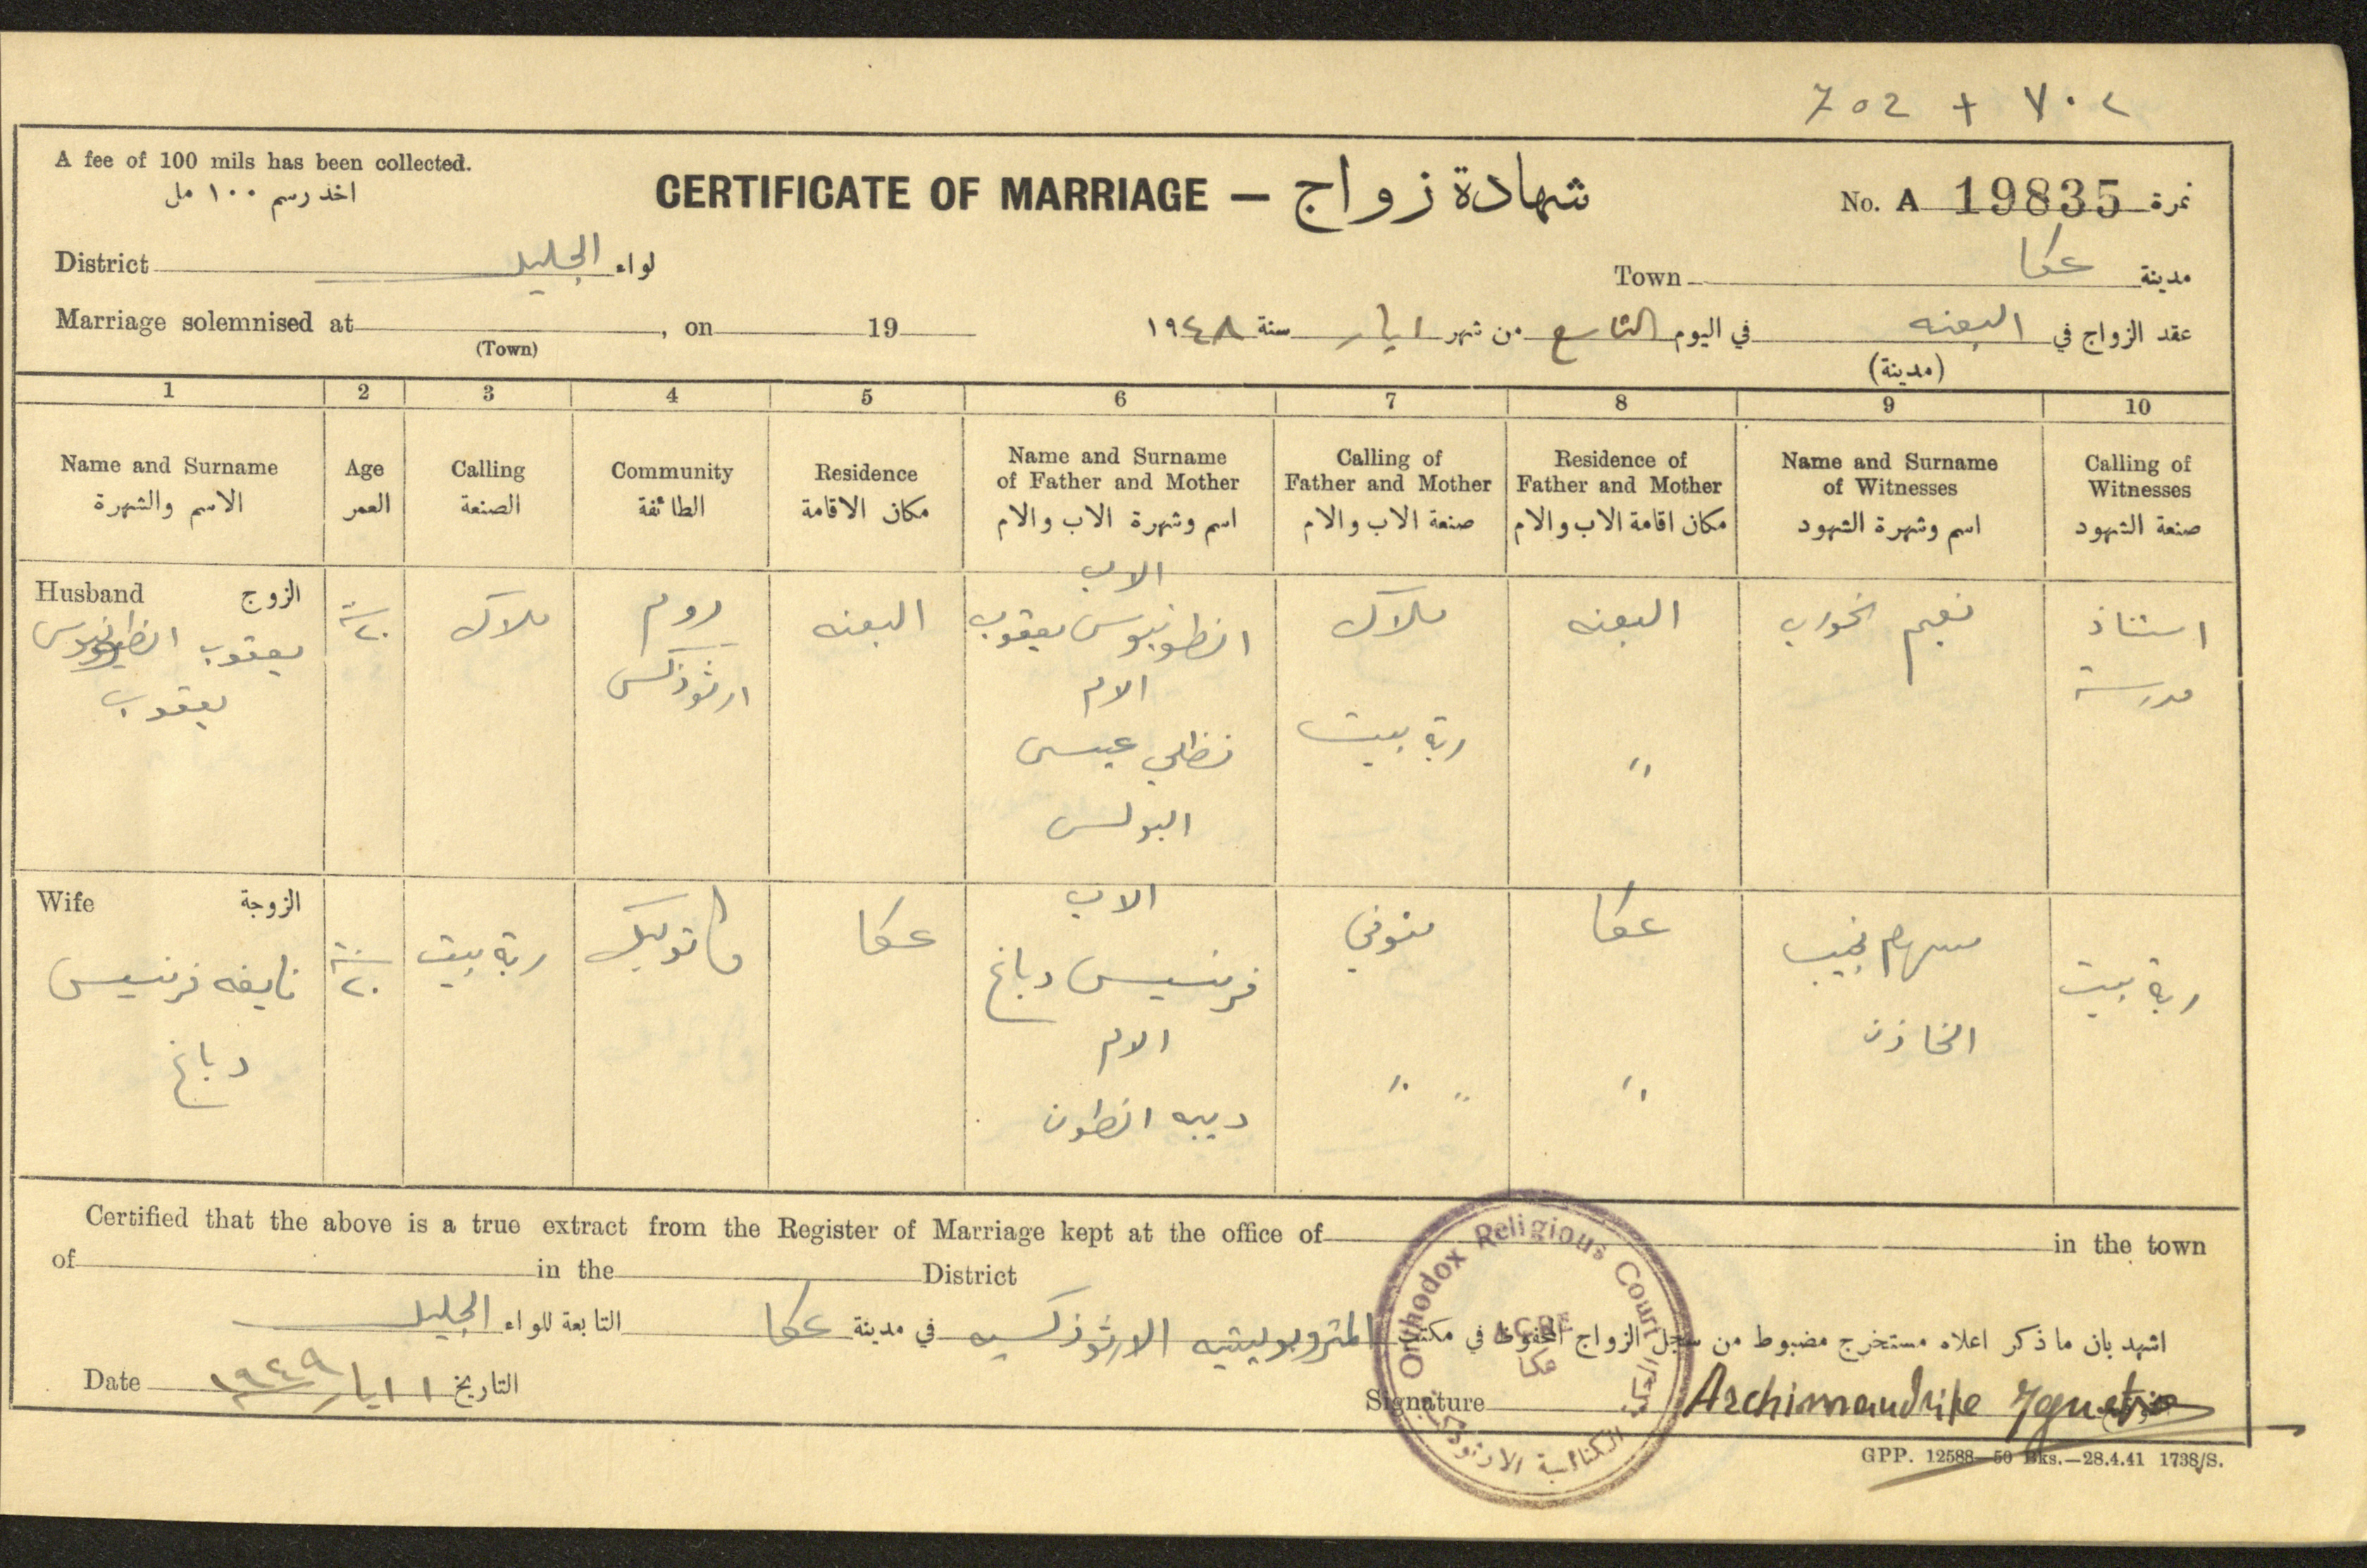 702 + ٧٠٢
A fee of 100 mils has been collected.
اخذ رسم ١٠٠ مل
CERTIFICATE OF MARRIAGE — شهادة زواج
No. A 19835 نمرة
District الجليل لواء
Town عكا مدينة
Marriage solemnised at , on 19
(Town)
عقد الزواج في البعنه في اليوم التاسع من شهر ايار سنة ١٩٤٨
(مدينة)
1 2 3 4 5 6 7 8 9 10
Name and Surname
الاسم والشهرة
Age
العمر
Calling
الصنعة
Community
الطائفة
Residence
مكان الاقامة
Name and Surname
of Father and Mother
اسم وشهرة الاب والام
Calling of
Father and Mother
صنعة الاب والام
Residence of
Father and Mother
مكان اقامة الاب والام
Name and Surname
of Witnesses
اسم وشهرة الشهود
Calling of
Witnesses
صنعة الشهود
Husband الزوج
يعقوب انطونيوس
يعقوب
سنة
٢٠
ملاك
روم
ارثوذكس
البعنه
الاب
انطونيوس يعقوب
الام
نظلي عيسى
البولس
ملاك
ربة بيت
البعنه
"
نعيم الخوري
استاذ
مدرسة
Wife الزوجة
نايفه فرنسيس
دباغ
سنة
٢٠
ربة بيت
كاتوليك
عكا
الاب
فرنسيس دباغ
الام
ديبه انطون
متوفي
" "
عكا
"
سهام نجيب
الخازن
ربة بيت
Certified that the above is a true extract from the Register of Marriage kept at the office of in the town
of in the District
اشهد بان ما ذكر اعلاه مستخرج مضبوط من سجل الزواج المحفوظ في مكتب المتروبوليتيه الارثوذكسيه في مدينة عكا التابعة للواء الجليل
Date ١١ ايار ١٩٤٩ التاريخ
Signature Archimandrite
Orthodox Religious Court
ACRE
عكا
المحكمة الكنائسية الارثوذكسية
GPP. 12588—50 Bks.—28.4.41 1738/S.